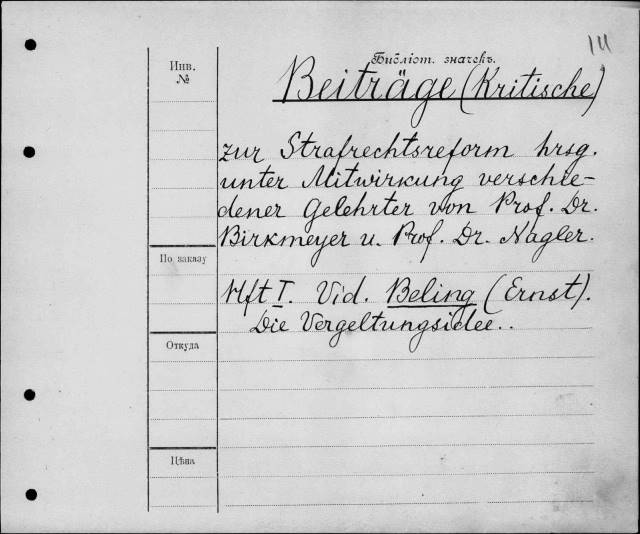 14
Библіот. значекъ.
Инв.
№
Beiträge (Kritische)
zur Strafrechtsreform hrsg.
unter Mitwirkung verschie-
dener Gelehrter von Prof. Dr.
Birkmeyer u. Prof. Dr. Nagler.
По заказу
Hft I. Vid. Beling (Ernst).
Die Vergeltungsidee..
Откуда
Цѣна